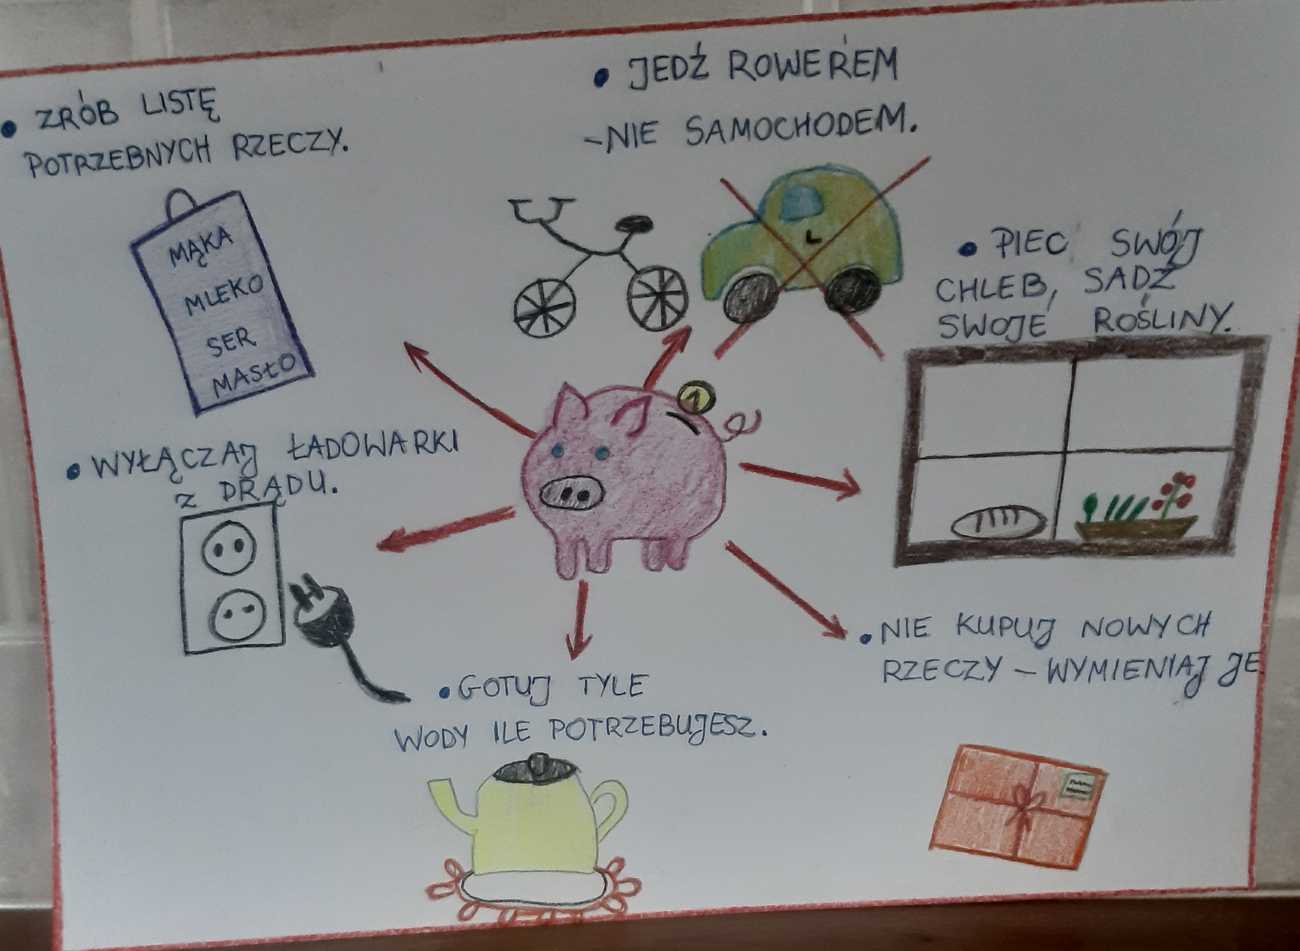 • ZRÓB LISTĘ
POTRZEBNYCH RZECZY.
MĄKA
MLEKO
SER
MASŁO
• JEDŹ ROWEREM
-NIE SAMOCHODEM.
L
• PIEC SWÓJ
CHLEB, SADŹ
SWOJE ROŚLINY.
1
• WYŁĄCZAJ ŁADOWARKI
Z PRĄDU.
• GOTUJ TYLE
WODY ILE POTRZEBUJESZ.
• NIE KUPUJ NOWYCH
RZECZY – WYMIENIAJ JE